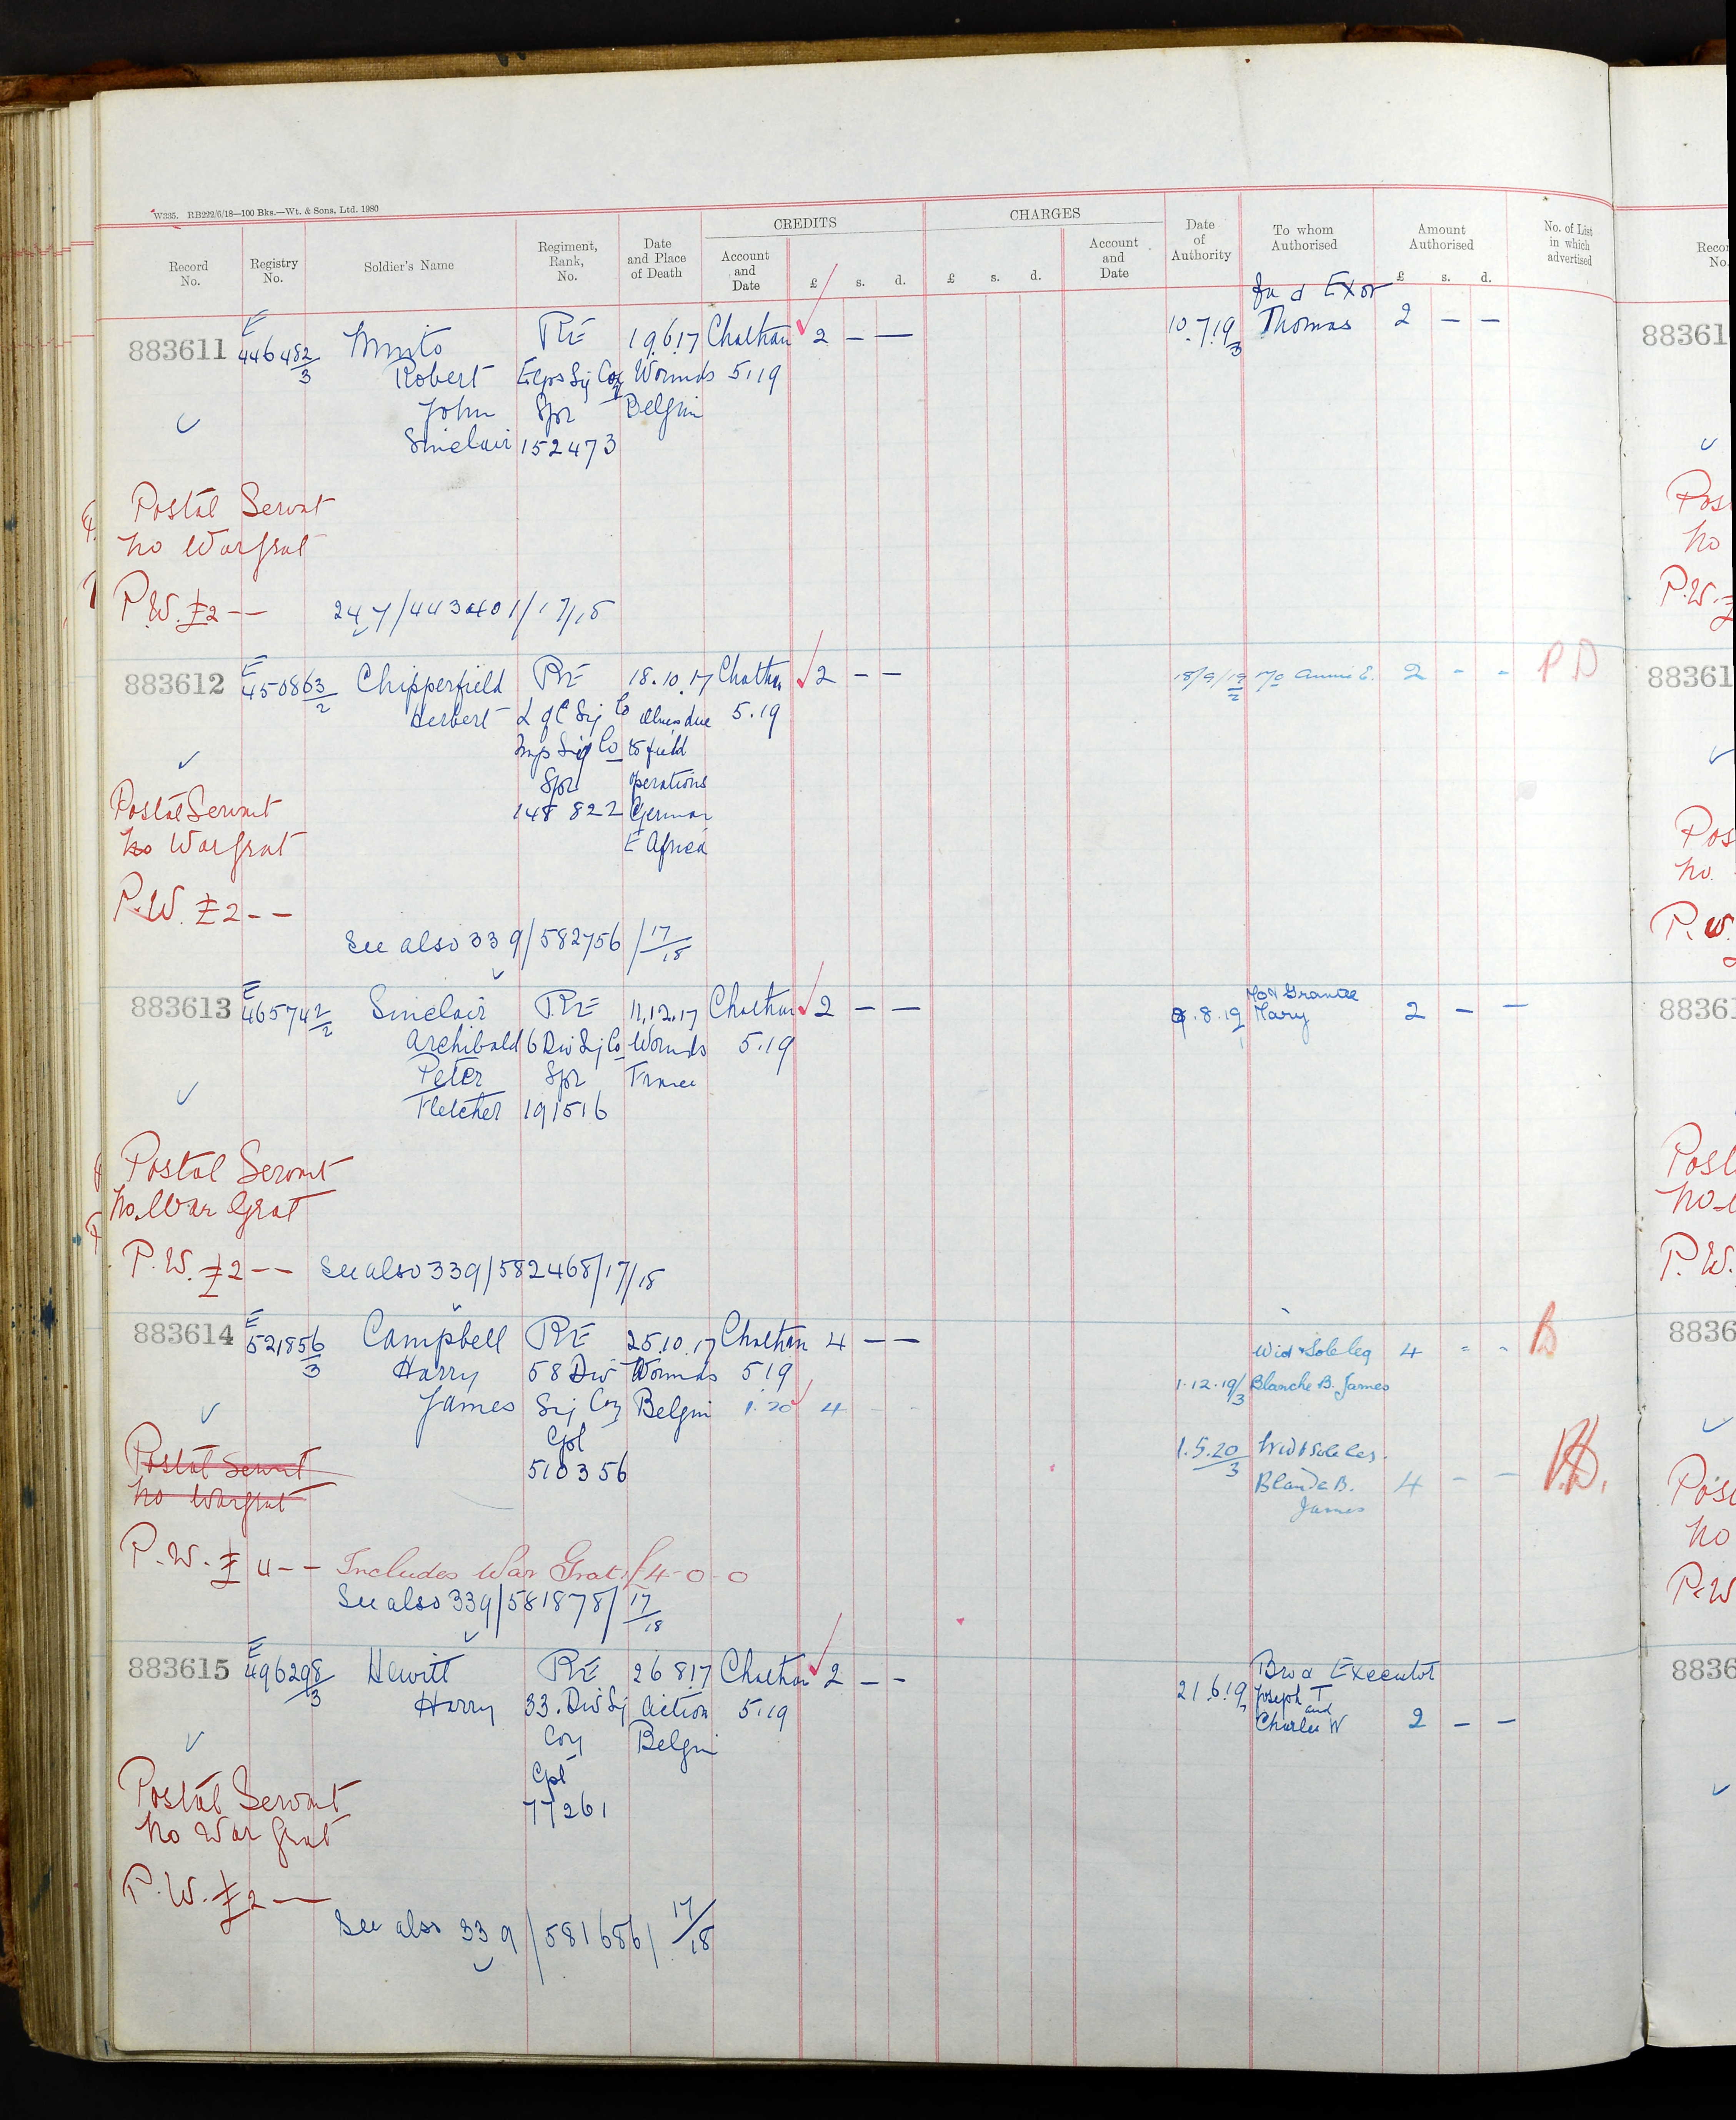 W335. RB222/6/18—100 Bks.—Wt. & Sons, Ltd. 1980
Record No.
Registry No.
Soldier's Name
Regiment, Rank, No.
Date and Place of Death
CREDITS
Account and Date
£ s. d.
CHARGES
£ s. d.
Account and Date
Date of Authority
To whom Authorised
Amount Authorised
£ s. d.
No. of List in which advertised
883611 E 446482/3 RE 19.6.17 Chatham 2 — — 10.7.19/3 Fa & Exor Thomas 2 — —
Robert Sig Coy Wounds 5.19
John Spr Belgim
Sinclair 152473
Postal Servt
No War Grat
P.W. £2 — —
247/443401/17/18
883612 E 450863/2 Chipperfield RE 18.10.17 Chatham 2 — — 18/9/19/2 Mo Annie E. 2 - - PD
Herbert L of C Sig Co Illness due 5.19
Sig Co to field
Spr operations
148822 German
E Africa
Postal Servant
No War Grat
P.W. £2 — —
See also 339/582756/17/18
883613 E 465742/2 Sinclair RE 11.12.17 Chatham 2 — — 9.8.19 Mary 2 — —
Archibald 6 Div Sig Co Wounds 5.19
Peter Spr France
Fletcher 191516
Postal Servant
No War Grat
P.W. £2 — — See also 339/582468/17/18
883614 E 521856/3 Campbell RE 25.10.17 Chatham 4 — — Wid & Sole Leg 4 - -
Harry 58 Div Wounds 5.19 1.12.19/3 Blanche B. James
James Sig Coy Belgim 1.20 4 - -
Cpl
510356
1.5.20/3 Wid & Sole Leg.
Blanche B. 4 - -
James
Postal Servt
No War Grat
P.W. £4 — — Includes War Grat £4-0-0
See also 339/581878/17/18
883615 E 496298/3 Hewitt RE 26.8.17 Chatham 2 — — Bro & Executor
Harry 33. Div Sig Action 5.19 21.6.19 Joseph T and
Coy Belgim Charles W 2 — —
Cpl
77261
Postal Servant
No War Grat
P.W. £2 —
See also 339/581686/17/18